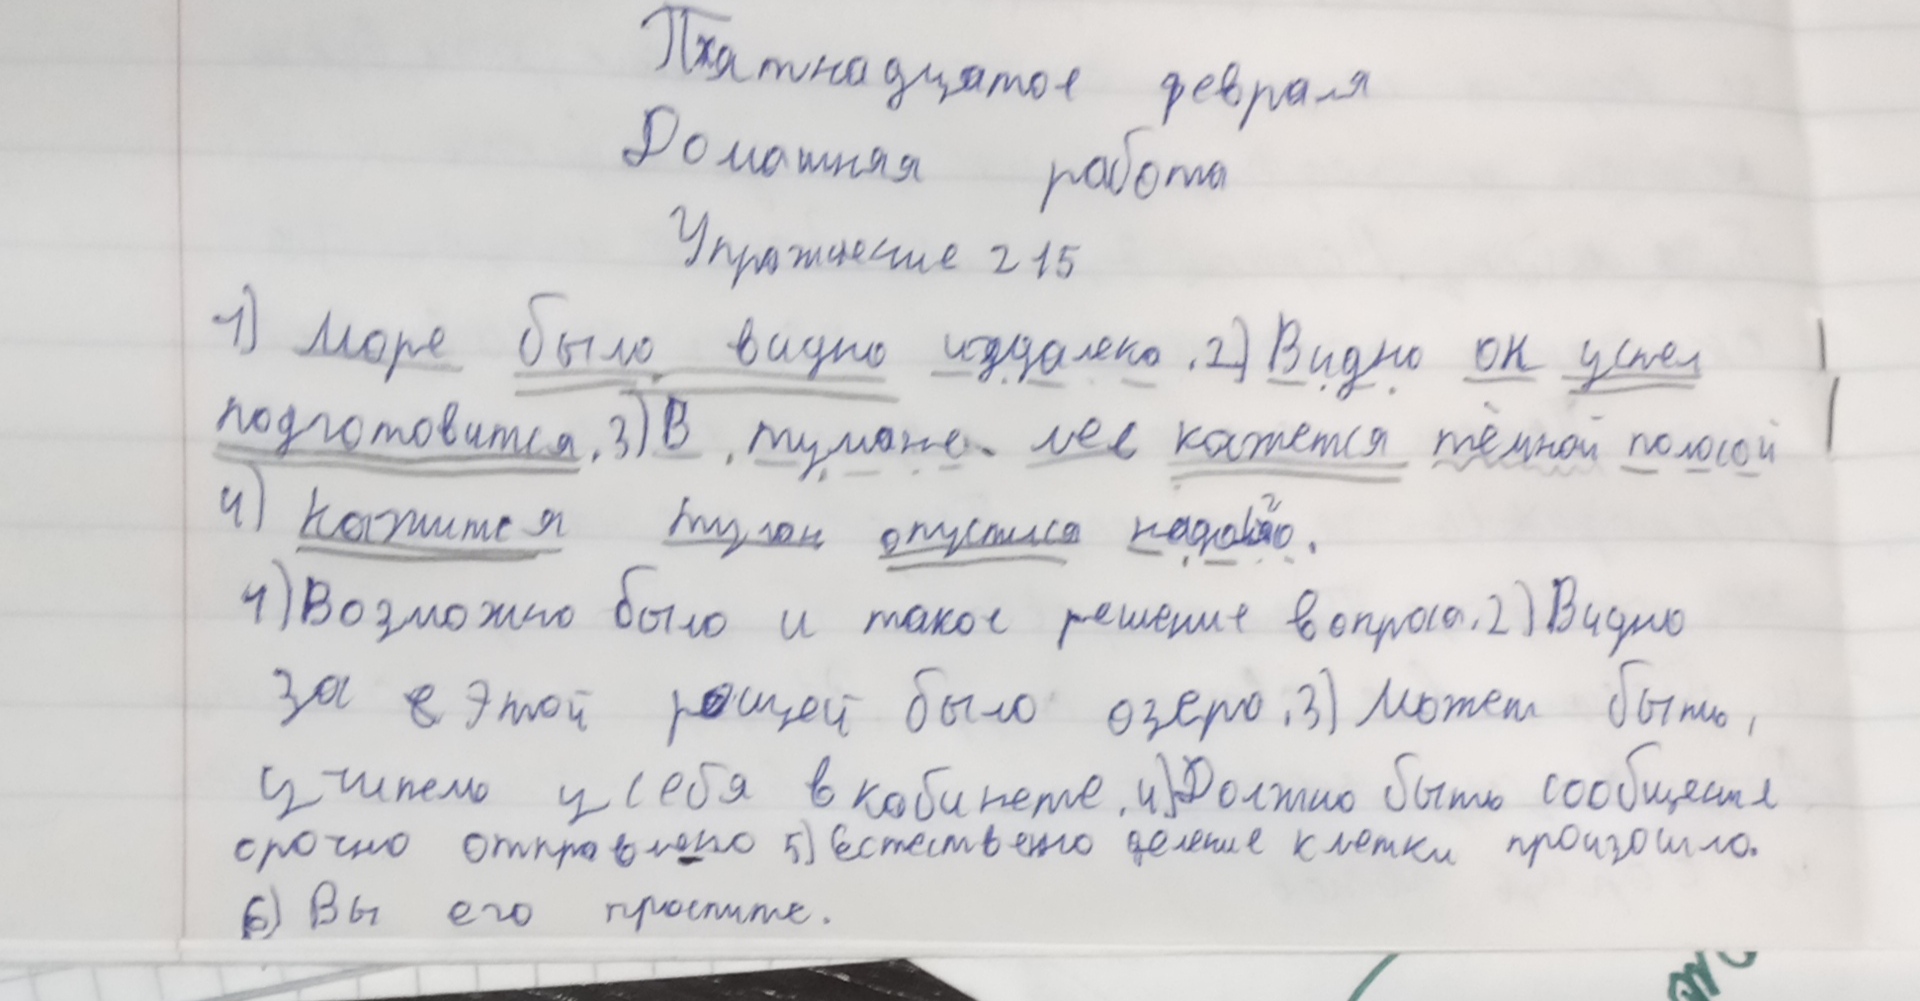 Пятнадцатое февраля
Домашняя работа
Упражнение 215
1) Море было видно издалека. 2) Видно он успел
подготовится. 3) В тумане лес кажется тёмной полосой
4) Кажится туман опустился надолго.
1) Возможно было и такое решение вопроса. 2) Видно
за этой рощей было озеро. 3) Может быть,
учитель у себя в кабинете. 4) Должно быть сообщение
срочно отправлено 5) Естественно деление клетки произошло.
6) Вы его простите.